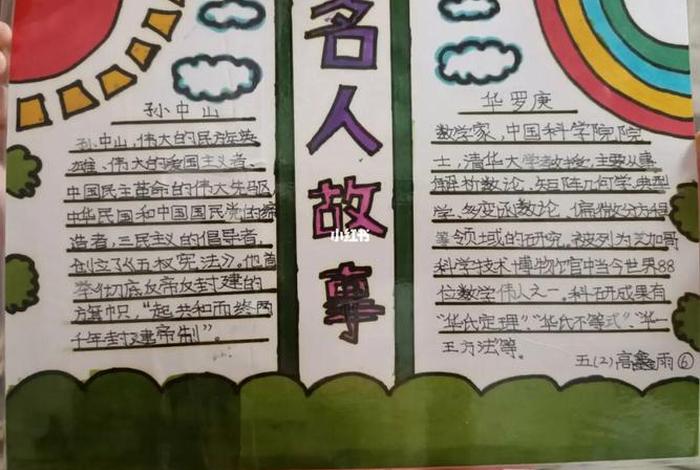 名人故事
孙中山
孙中山，伟大的民族英
雄、伟大的爱国主义者、
中国民主革命的伟大先驱，
中华民国和中国国民党的缔
造者，三民主义的倡导者，
创立了《五权宪法》。他首
举彻底反帝反封建的
旗帜，“起共和而终两
千年封建帝制”。
华罗庚
数学家，中国科学院院
士，清华大学教授，主要从事
解析数论、矩阵几何学、典型
学、多变函数论、偏微分方程
等领域的研究，被列为芝加哥
科学技术博物馆中当今世界88
位数学伟人之一，科研成果有
“华氏定理”、“华氏不等式”、“华—
王方法”等。
五(2) 高鑫雨 ⑥
小红书